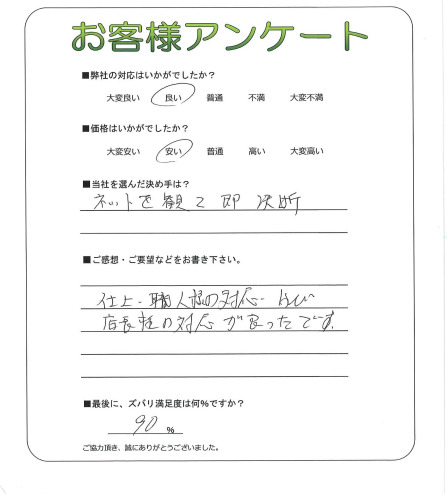 お客様アンケート
■弊社の対応はいかがでしたか？
大変良い 良い 普通 不満 大変不満
■価格はいかがでしたか？
大変安い 安い 普通 高い 大変高い
■当社を選んだ決め手は？
ネットを観て即決断
■ご感想・ご要望などをお書き下さい。
仕上・職人様の対応・
店長様の対応が良ったです。
■最後に、ズバリ満足度は何％ですか？
90 ％
ご協力頂き、誠にありがとうございました。